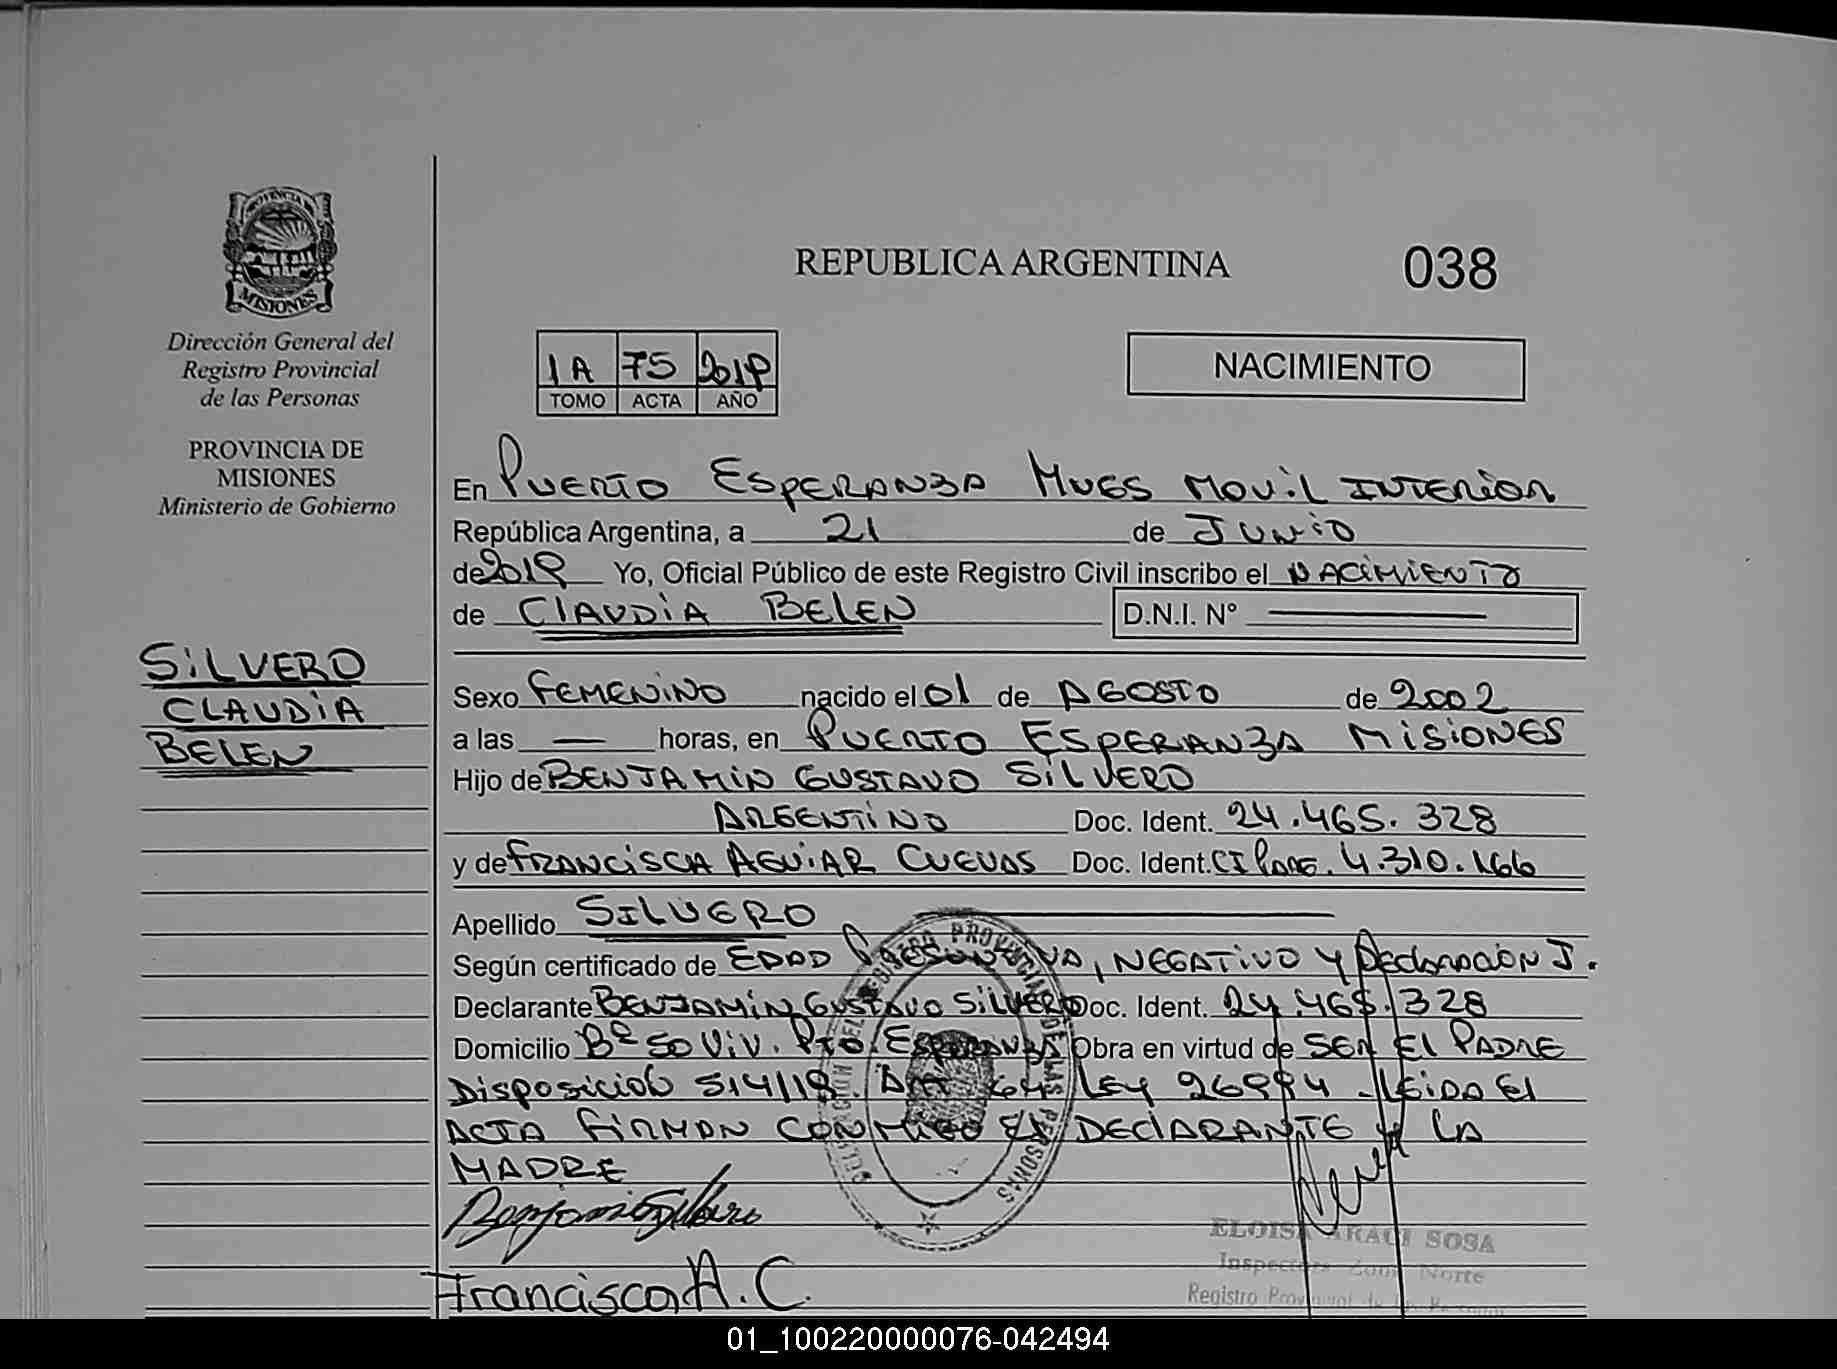 PROVINCIA DE
MISIONES
Dirección General del
Registro Provincial
de las Personas
PROVINCIA DE
MISIONES
Ministerio de Gobierno
SILVERO
CLAUDIA
BELEN
REPUBLICA ARGENTINA
038
1A 75 2019
TOMO ACTA AÑO
NACIMIENTO
En PUERTO ESPERANZA MNES MOVIL INTERIOR
República Argentina, a 21 de JUNIO
de 2019 Yo, Oficial Público de este Registro Civil inscribo el NACIMIENTO
de CLAUDIA BELEN D.N.I. N°
Sexo FEMENINO nacido el 01 de AGOSTO de 2002
a las — horas, en PUERTO ESPERANZA MISIONES
Hijo de BENJAMIN GUSTAVO SILVERO
ARGENTINO Doc. Ident. 24.465.328
y de FRANCISCA AGUIAR CUEVAS Doc. Ident. CI PARG. 4.310.166
Apellido SILVERO
Según certificado de EDAD PRESUNTIVA, NEGATIVO Y DEClARACION J.
Declarante BENJAMIN GUSTAVO SILVERO Doc. Ident. 24.465.328
Domicilio Bº 50 VIV. PTO. ESPERANZA Obra en virtud de SER El PADRE
DISPOSICION 514/19. ART 64 LEY 26994 - LEIDA El
ACTA FIRMAN CONMIGO El DEClARANTE Y LA
MADRE
Benjamin Silvero
Francisca A. C.
DELEGACION DEL REGISTRO PROVINCIAL DE LAS PERSONAS
ELOISA ARACI SOSA
Inspectora Zona Norte
Registro Provincial de las Personas
01_100220000076-042494